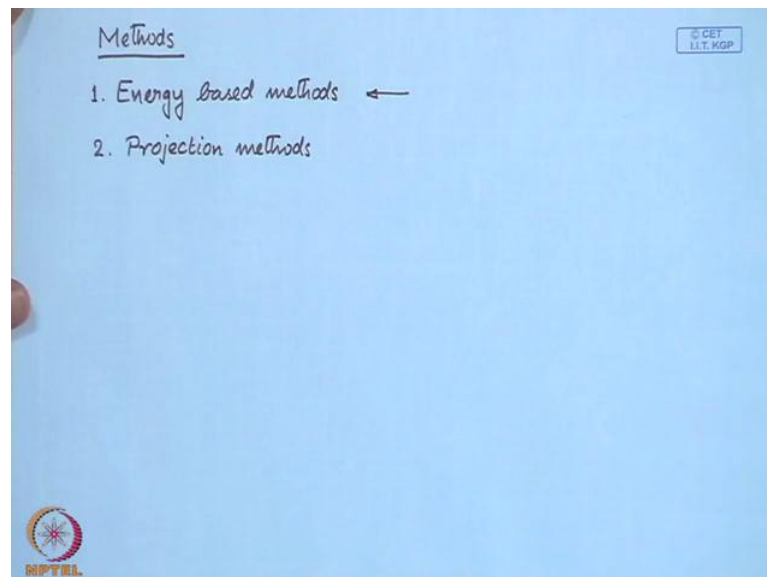 Methods
© CET
I.I.T. KGP
1. Energy based methods ←
2. Projection methods
NPTEL